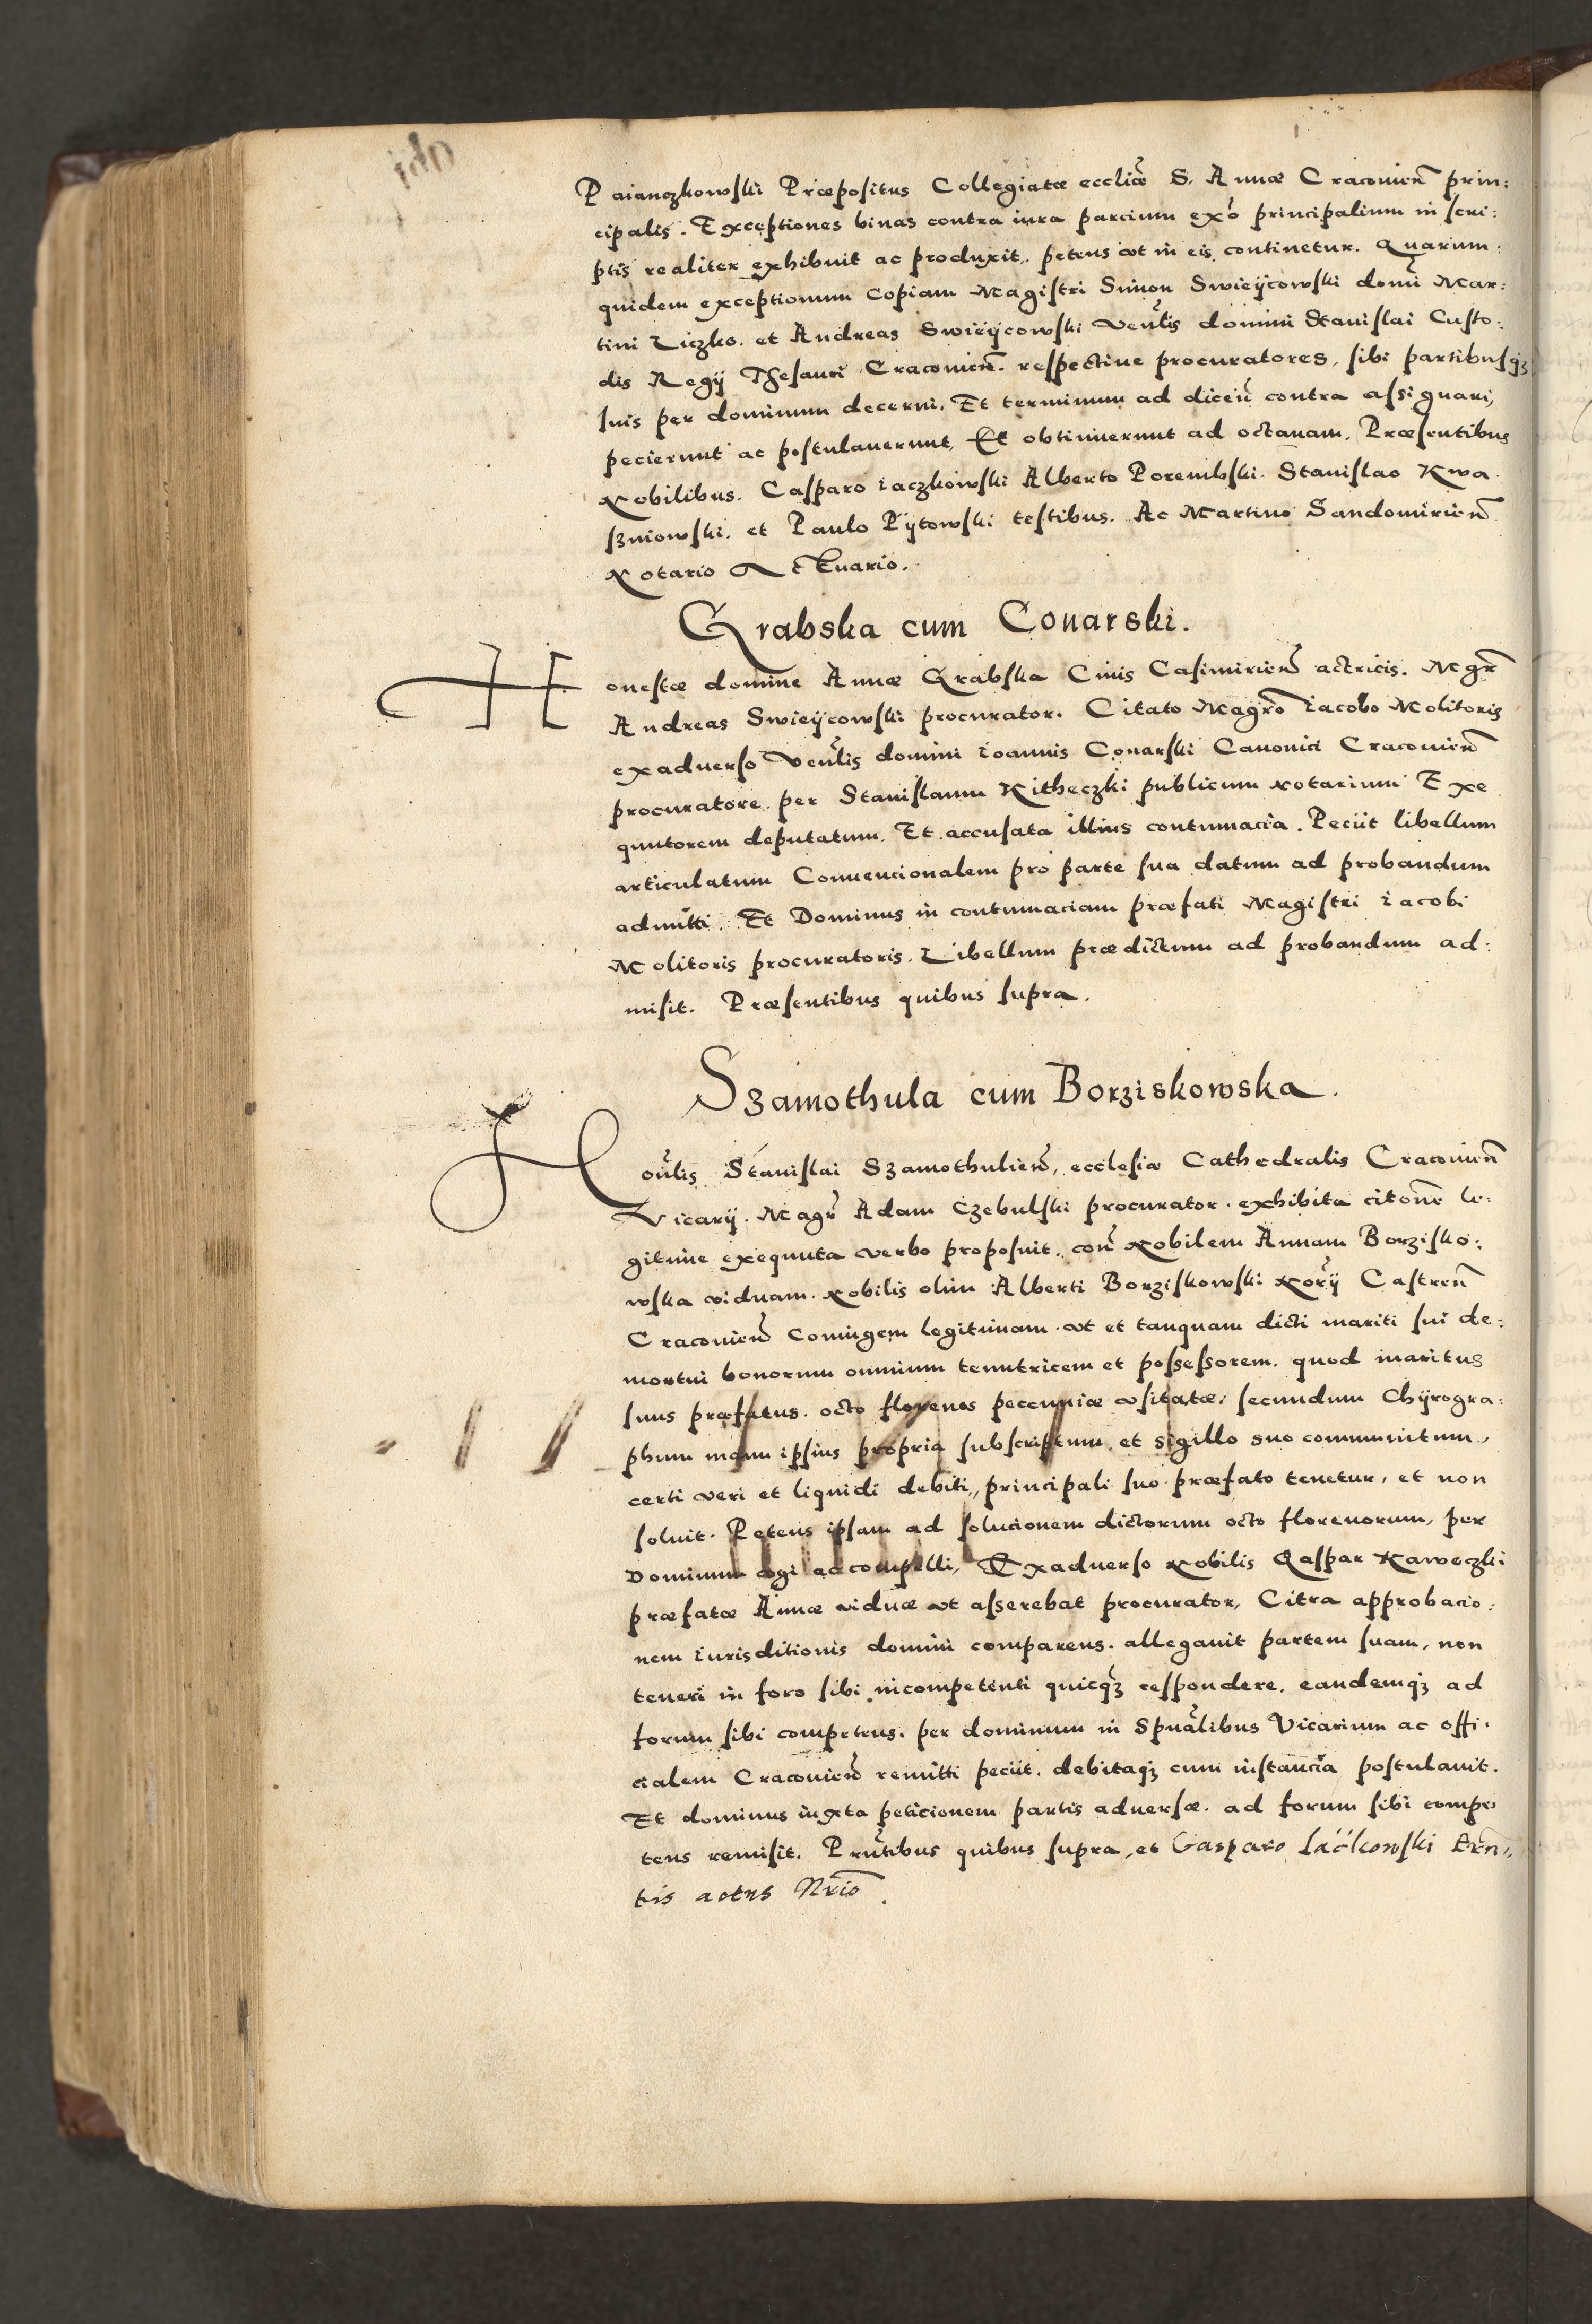 Paianczkowski Præpositus Collegiatæ eccliæ S. Annæ Cracouien̄ prin:
cipalis. Exceptiones binas contra iura parcium ex̄o principalium in scri:
ptis realiter exhibuit ac produxit. petens vt in eis continetur. Quarum:
quidem exceptionum Copiam Magistri Simon Swieÿcowski domi Mar:
tini Liczko. et Andreas Swieÿcowski Ven̄lis domini Stanislai Custo:
dis Regÿ Thesauri Cracouien̄. respectiue procuratores, sibi partibusqꝫ
suis per dominum decerni. Et terminum ad dicen̄ contra assignari,
pecierunt ac postulauerunt, Et obtinuerunt ad octauam. Præsentibus
Nobilibus. Casparo iaczkowski Alberto Porembski. Stanislao Kwa
szniowski. et Paulo Pÿtowski testibus. Ac Martino Sandomirien̄
Notario Actuario.
Grabska cum Conarski.
Honestæ domine Annæ Grabska Ciuis Casimirien̄ actricis. Mgr̄
Andreas Swieÿcowski procurator. Citato Magr̄o iacobo Molitoris
exaduerso Ven̄lis domini ioannis Conarski Canonici Cracouien̄
procuratore per Stanislaum Kitheczki publicum Notarium Exe
quutorem deputatum. Et accusata illius contumacia. Peciit libellum
articulatum Conuencionalem pro parte sua datum ad probandum
admitti. Et Dominus in contumaciam præfati Magistri iacobi
Molitoris procuratoris. Libellum prædictum ad probandum ad:
misit. Præsentibus quibus supra.
Szamothula cum Borziskowska.
Hon̄lis Stanislai Szamothulien̄, ecclesiæ Cathedralis Cracouien̄
Vicarÿ. Magr̄ Adam Czebulski procurator. exhibita citōne le:
gitime exequuta verbo proposuit. con̄ Nobilem Annam Borzisko:
wska viduam. Nobilis olim Alberti Borziskowski Nor̄ÿ Castren̄
Cracouien̄ Coniugem legitimam. vt et tanquam dicti mariti sui de:
mortui bonorum omnium tenutricem et possessorem. quod maritus
suus præfatus. octo florenos peccuniæ vsitatæ, secundum Chÿrogra:
phum manu ipsius propria subscriptum, et sigillo suo communitum,
certi veri et liquidi debiti, principali suo præfato tenetur, et non
soluit. Petens ipsam ad solucionem dictorum octo florenorum, per
Dominum cogi ac compelli, Exaduerso Nobilis Caspar Kaweczki
præfatæ Annæ viduæ vt asserebat procurator, Citra approbacio:
nem iurisditionis domini comparens. allegauit partem suam, non
teneri in foro sibi incompetenti quicqꝫ respondere. eandemqꝫ ad
forum sibi competens. per dominum in Spūalibus Vicarium ac offi:
cialem Cracouien̄ remitti peciit. debitaqꝫ cum instancia postulauit.
Et dominus iuxta peticionem partis aduersæ. ad forum sibi compe
tens remisit. Pn̄tibus quibus supra, et Gasparo Iačkowski
tis actus Nr̄io.